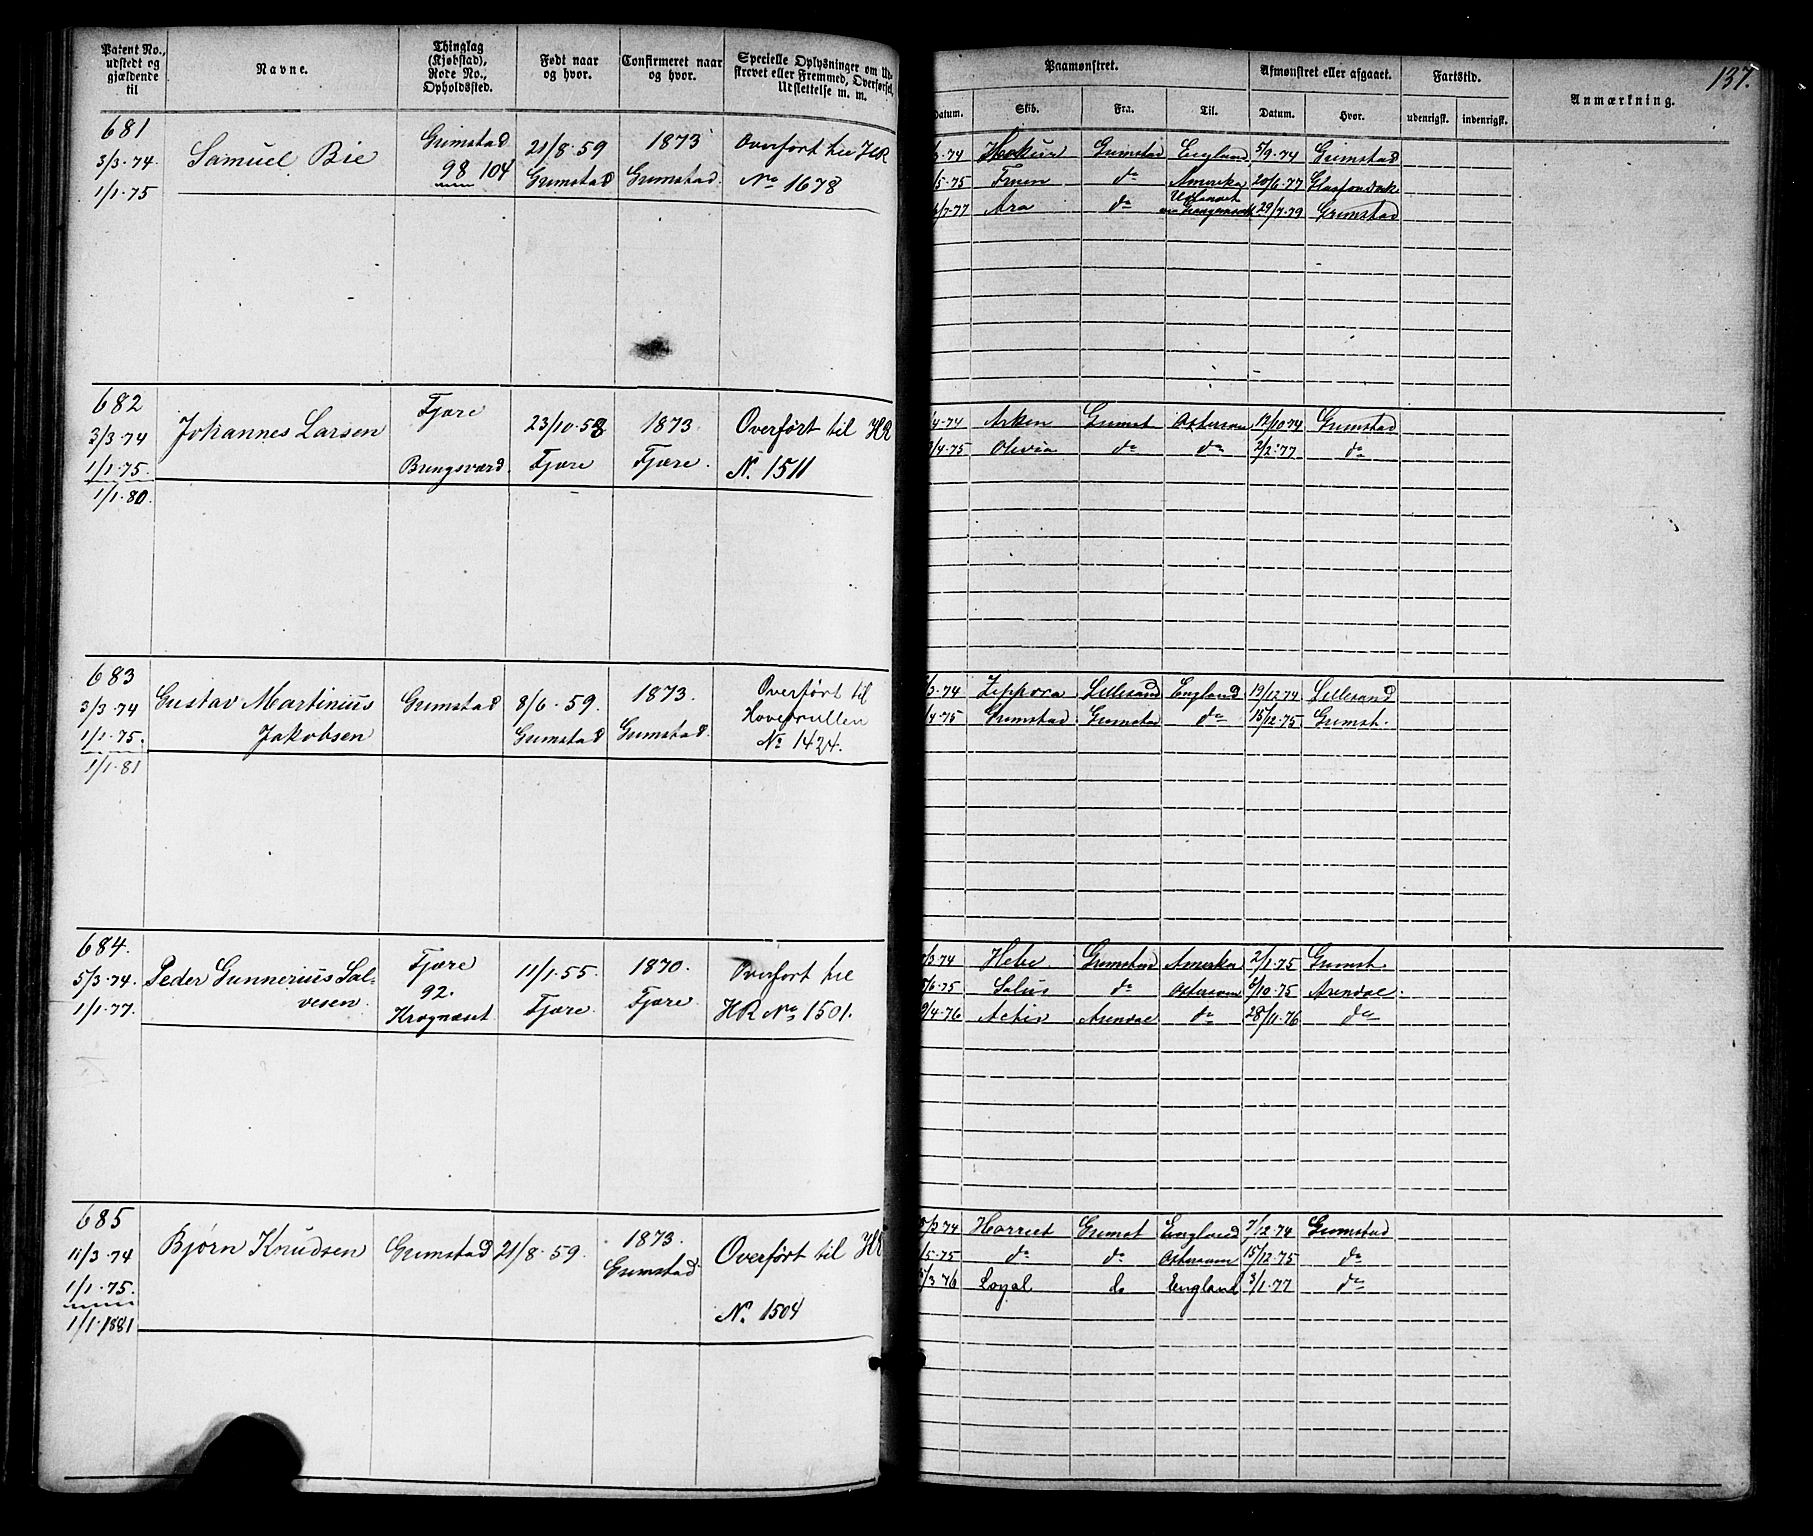 137.
Patent No., udstedt og gjældende til
Navne.
Thinglag (Kjøbstad), Rode No., Opholdssted.
Født naar og hvor.
Confirmeret naar og hvor.
Specielle Oplysninger om Ud-
skrevet eller Fremmed, Overførsel,
Udslettelse m. m.
Paamønstret.
Datum. Skib. Fra. Til.
Afmønstret eller afgaaet.
Datum. Hvor.
Fartstid.
udenrigsk. indenrigsk.
Anmærkning.
681
3/3·74
1/1·75
Samuel Bie
Grimstad
98 104
21/8·59
Grimstad
1873
Grimstad.
Overført til HR
No 1678
3·74 Grimstad England 5/9·74 Grimstad
/5·75 Fruen do Amerika 20/6·77
/7·77 Ara do 29/7·79 Grimstad
682
3/3·74
1/1·75.
1/1·80.
Johannes Larsen
Fjære
Bringsværd.
23/10·58
Fjære
1873
Fjære.
Overført til HR
N. 1511
/4·74 Grimst Østersøen 12/10 74 Grimstad
/4·75 Olivia do do 2/2·77 do
683
3/3·74
1/1·75.
1/1·81
Gustav Martinius
Jakobsen
Grimstad
8/6·59.
Grimstad
1873
Grimstad.
Overført til
Hovedrullen
No 1424.
/3·74 Zippora Lillesand England 19/12 74 Lillesand
/4·75 Grimstad Grimstad do 15/12·75 Grimst.
684.
5/3·74.
1/1·77.
Peder Gunnerius Sal-
vesen.
Fjære
92.
Krognæset
11/1·55.
Fjære.
1870.
Fjære
Overført til
HR No 1501.
/3 74 Hebe Grimstad Amerika 2/1·75 Grimst.
5/6·75 Salus do Østersøen 6/10·75 Arendal.
9/4·76 Arendal do 28/11·76 do
685
11/3·74
1/1·75.
1/1·1881
Bjørn Knudsen
Grimstad
21/8·59.
1873.
Grimstad.
Overført til HR
N. 1504
/3 74 Harriet Grimst England 7/12·74 Grimstad
/5·75 do do Østersøen 15/12·75 do
5/3 76 Loyal do England 3/1·77 do